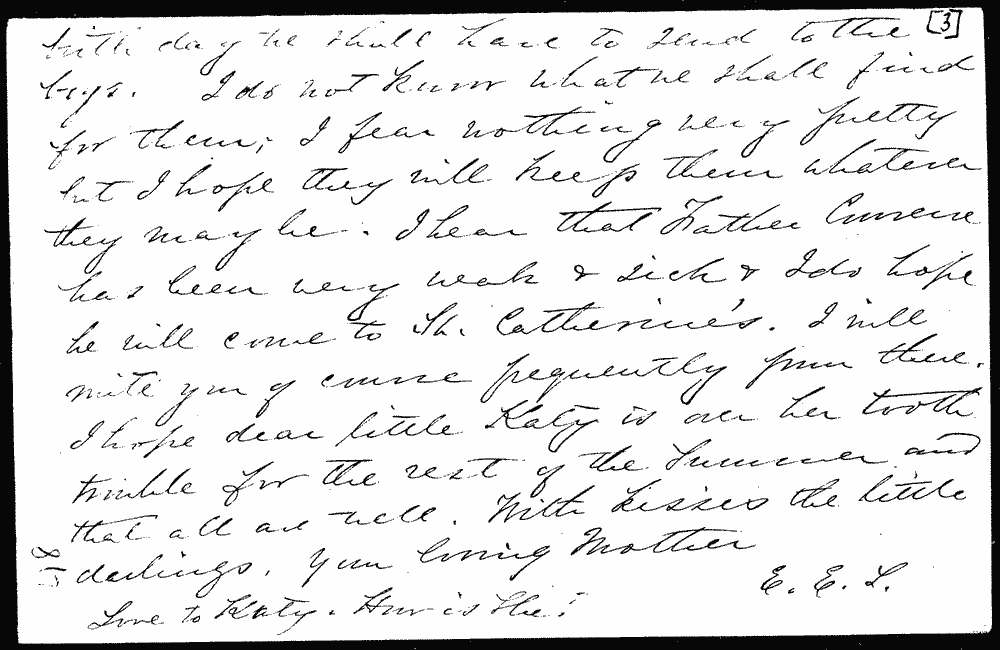 [3]
birth day we shall have to send to the
boys. I do not know what we shall find
for them; I fear nothing very pretty
but I hope they will keep them whatever
they may be. I hear that Father
has been very weak & sick & I do hope
he will come to St. Catherine's. I will
write you of course frequently from there.
I hope dear little Katy is over her tooth
trouble for the rest of the Summer and
that all are well. With kisses the little
darlings. Your loving Mother
E. E. L.
Love to Katy. How is she?